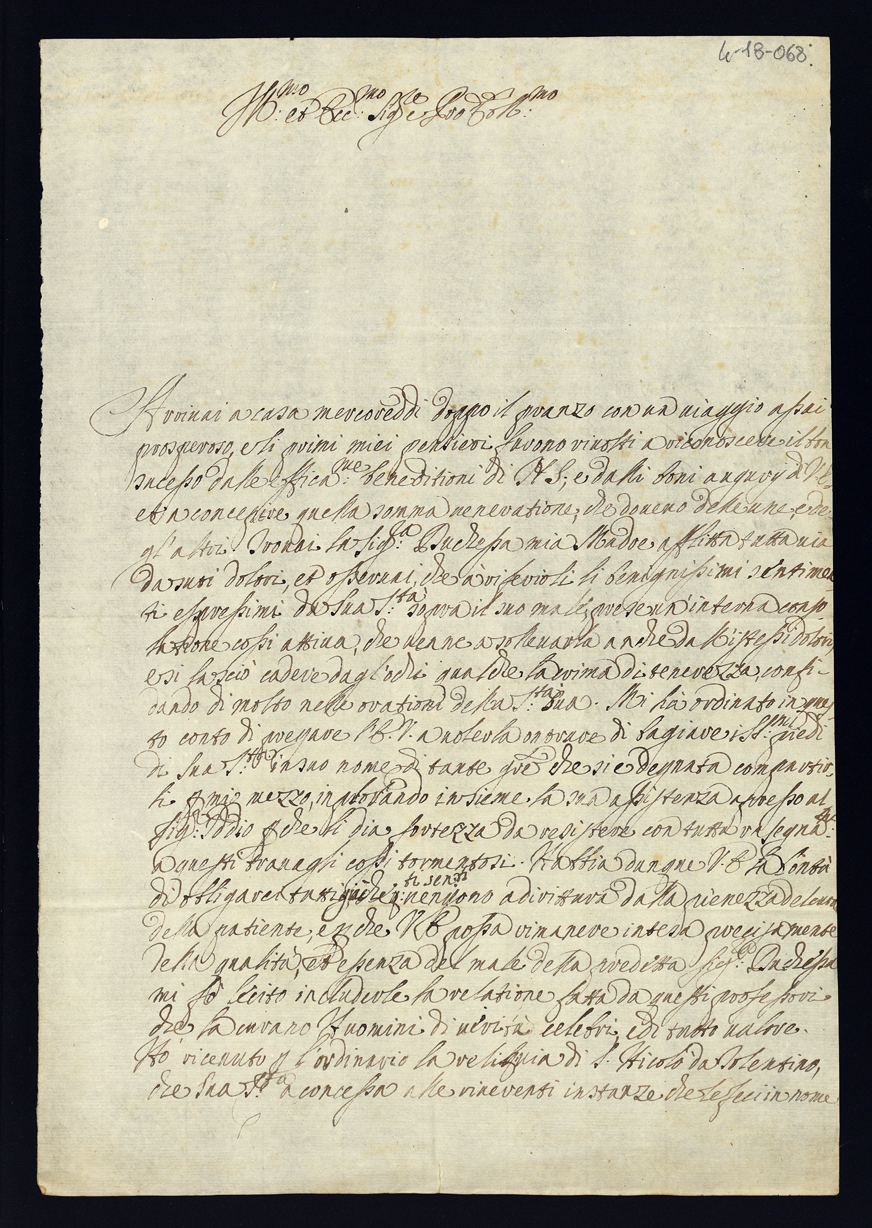 4-13-068
Ill:mo et Ecc:mo Sig:re Pro Coll:mo
Arrivai a casa mercoreddi doppo il pranzo con un uiaggio assai
prosperoso, e li primi miei pensieri furono riuolti a riconoscere il bon
sucesso dalle effica:me beneditioni di N S; e dalli boni augury di V E,
et a concepire quella somma ueneratione, che doueuo delle une, e de-
gl'altri. Trouai la Sig:ra Duchessa mia Madre afflitta tutta uia
da suoi dolori, et osseruai, che à riferirli li benignissimi sentimen
ti espressimi da Sua S:tà sopra il suo male, prese un'interna conso
latione cossi attiua, che uenne a solleuarla anche da l'istessi dolori,
e si lasciò cadere dagl'ochi qualche lacrima di tenerezza confi-
dando di molto nelle orationi della S:tà Sua. Mi hà ordinato in ques
to conto di pregare V.E. a uolerla onorare di bagiare i SS:mi piedi
di Sua S:tà in suo nome di tante gre che si è degnata compartir,
li p mio mezzo, implorando insieme la sua assistenza apresso al
Sig:r Iddio p che li dia fortezza da resistere con tutta rasegna:ne
a questi trauagli cossi tormentosi. Habbia dunque V.E la bontà
di obligarci tutti, giache
ti sensi
uengono adirittura dalla pienezza del cuore
della patiente, e p che V E possa rimanere intesa precisamente
della qualità, et essenza del male della predetta Sig:ra Duchessa
mi fò lecito includerle la relatione fatta da questi professori
che la curano Huomini di uerità celebri, e di tutto ualore.
Hò riceuuto p l'ordinario la reliquia di S. Nicolò da Tolentino,
che Sua S:tà a concessa alle riuerenti instanze che le feci in nome